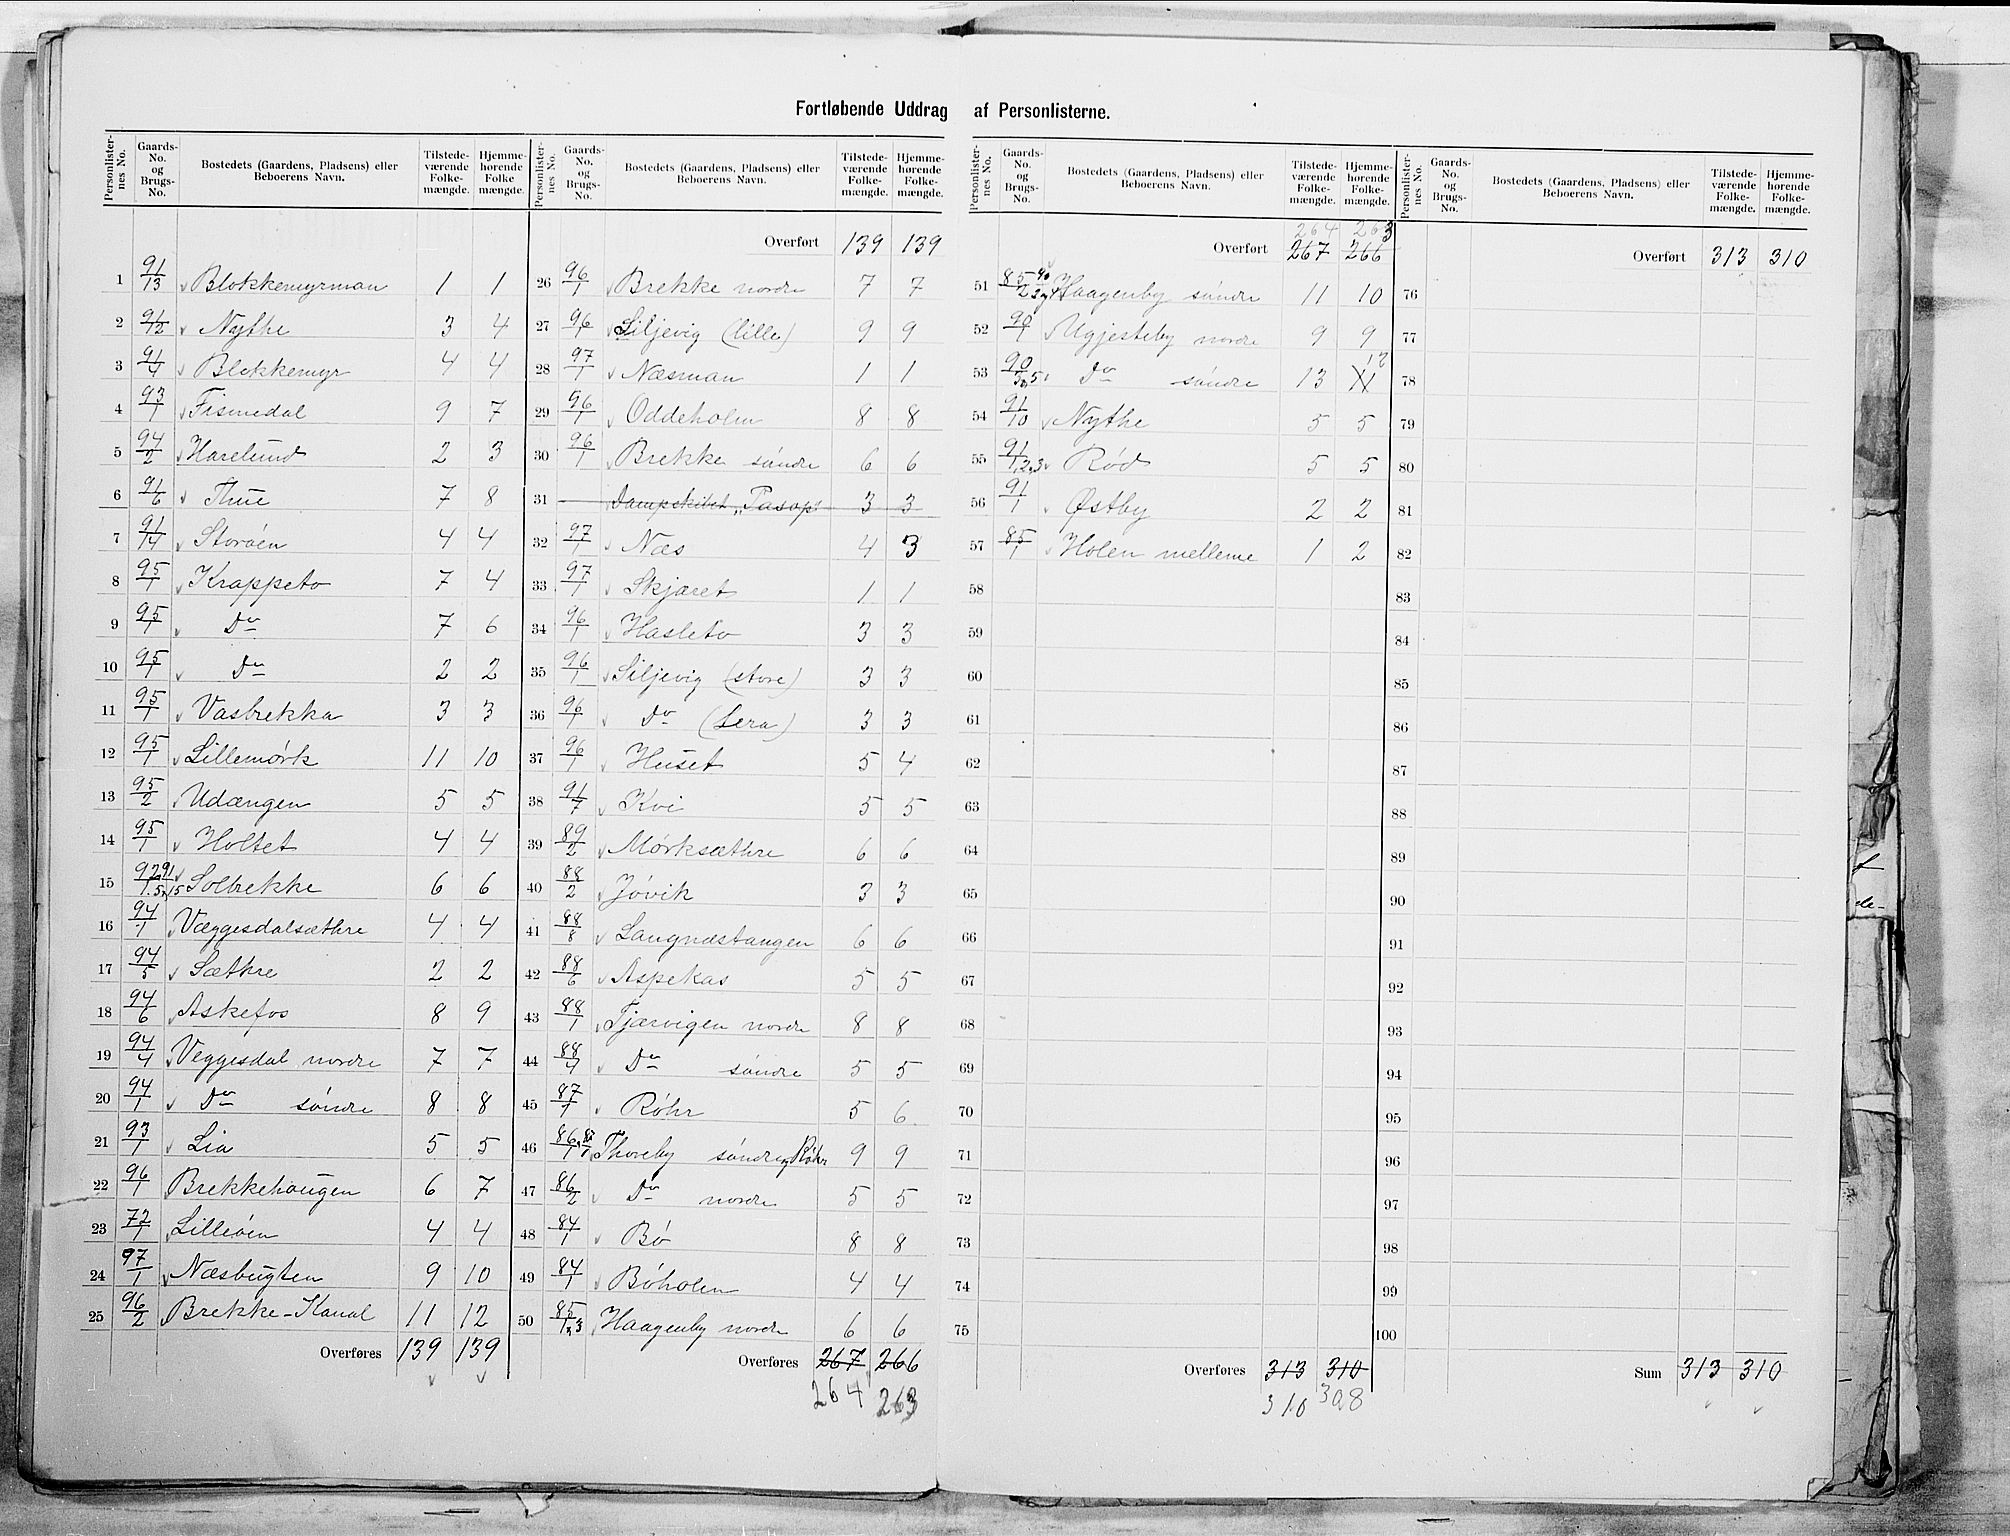 Fortløbende Uddrag af Personlisterne.
Personlister-nes No. Gaards-No. og Brugs-No. Bostedets (Gaardens, Pladsens) eller Beboerens Navn. Tilstede-værende Folke-mængde. Hjemme-hørende Folke mængde.
1 91/13 Blokkemyrman 1 1
2 91/12 Nythe 3 4
3 91/4 Blokkemyr 4 4
4 93/1 Fismedal 9 7
5 94/2 Harelund 2 3
6 91/6 Thue 7 8
7 91/14 Storøen 4 4
8 95/1 Krappeto 7 4
9 95/1 Do 7 6
10 95/1 Do 2 2
11 95/1 Vasbrekka 3 3
12 95/1 Lillemørk 11 10
13 95/2 Udængen 5 5
14 95/1 Holtet 4 4
15 92/1.5, 91/15 Solbrekke 6 6
16 94/1 Væggesdalsæthre 4 4
17 94/5 Sæthre 2 2
18 94/6 Askefos 8 9
19 94/4 Veggesdal nordre 7 7
20 94/1 Do søndre 8 8
21 93/1 Lia 5 5
22 96/1 Brekkehaugen 6 7
23 72/1 Lilleøen 4 4
24 97/1 Næsbugten 9 10
25 96/2 Brekke-Kanal 11 12
Overføres 139 139
Personlister-nes No. Gaards-No. og Brugs-No. Bostedets (Gaardens, Pladsens) eller Beboerens Navn. Tilstede-værende Folke-mængde. Hjemme-hørende Folke-mængde.
Overført 139 139
26 96/1 Brekke nordre 7 7
27 96/1 Siljevig (lille) 9 9
28 97/1 Næsman 1 1
29 96/1 Oddeholm 8 8
30 96/1 Brekke søndre 6 6
31 Dampskibet „Pasop" 3 3
32 97/1 Næs 4 3
33 97/1 Skjæret 1 1
34 96/1 Hasleto 3 3
35 96/1 Siljevig (store) 3 3
36 96/1 Do (Lera) 3 3
37 96/1 Huset 5 4
38 91/7 Kvi 5 5
39 89/2 Mørksæthre 6 6
40 88/2 Jøvik 3 3
41 88/8 Langnæstangen 6 6
42 88/6 Aspekas 5 5
43 88/1 Tjærvigen nordre 8 8
44 88/4 Do søndre 5 5
45 87/1 Røhr 5 6
46 86/1, 87/1 Thoreby søndre og Røhr 9 9
47 86/2 Do nordre 5 5
48 84/1 Bø 8 8
49 84/1 Bøholen 4 4
50 85/1,3 Haagenby nordre 6 6
Overføres 267 266
264 263
Personlister-nes No. Gaards-No. og Brugs-No. Bostedets (Gaardens, Pladsens) eller Beboerens Navn. Tilstede-værende Folke-mængde. Hjemme-hørende Folke-mængde.
264 263
Overført 267 266
51 85/2 90/3 og 4 Haagenby søndre 11 10
52 90/1 Ugjesteby nordre 9 9
12
53 90/3,5 Do søndre 13 11
54 91/10 Nythe 5 5
55 91/1,2,3 Rød 5 5
56 91/1 Østby 2 2
57 85/1 Holen mellem 1 2
58
59
60
61
62
63
64
65
66
67
68
69
70
71
72
73
74
75
Overføres 313 310
310 308
Personlister-nes No. Gaards-No. og Brugs-No. Bostedets (Gaardens, Pladsens) eller Beboerens Navn. Tilstede-værende Folke-mængde. Hjemme-hørende Folke-mængde.
Overført 313 310
76
77
78
79
80
81
82
83
84
85
86
87
88
89
90
91
92
93
94
95
96
97
98
99
100
Sum 313 310